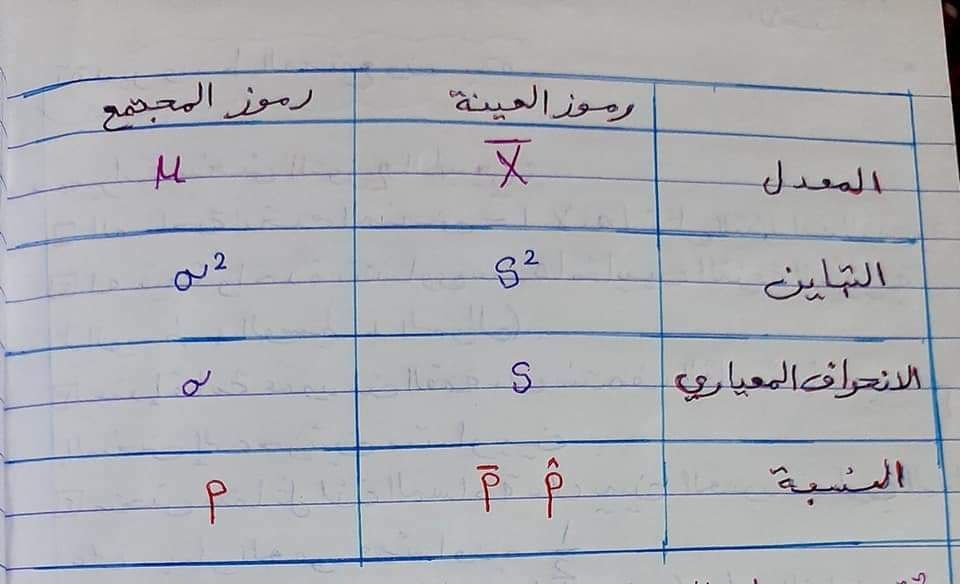 رموز العينة رموز المجتمع
المعدل X̅ μ
التباين S² σ²
الانحراف المعياري S σ
النسبة p̅ p̂ p